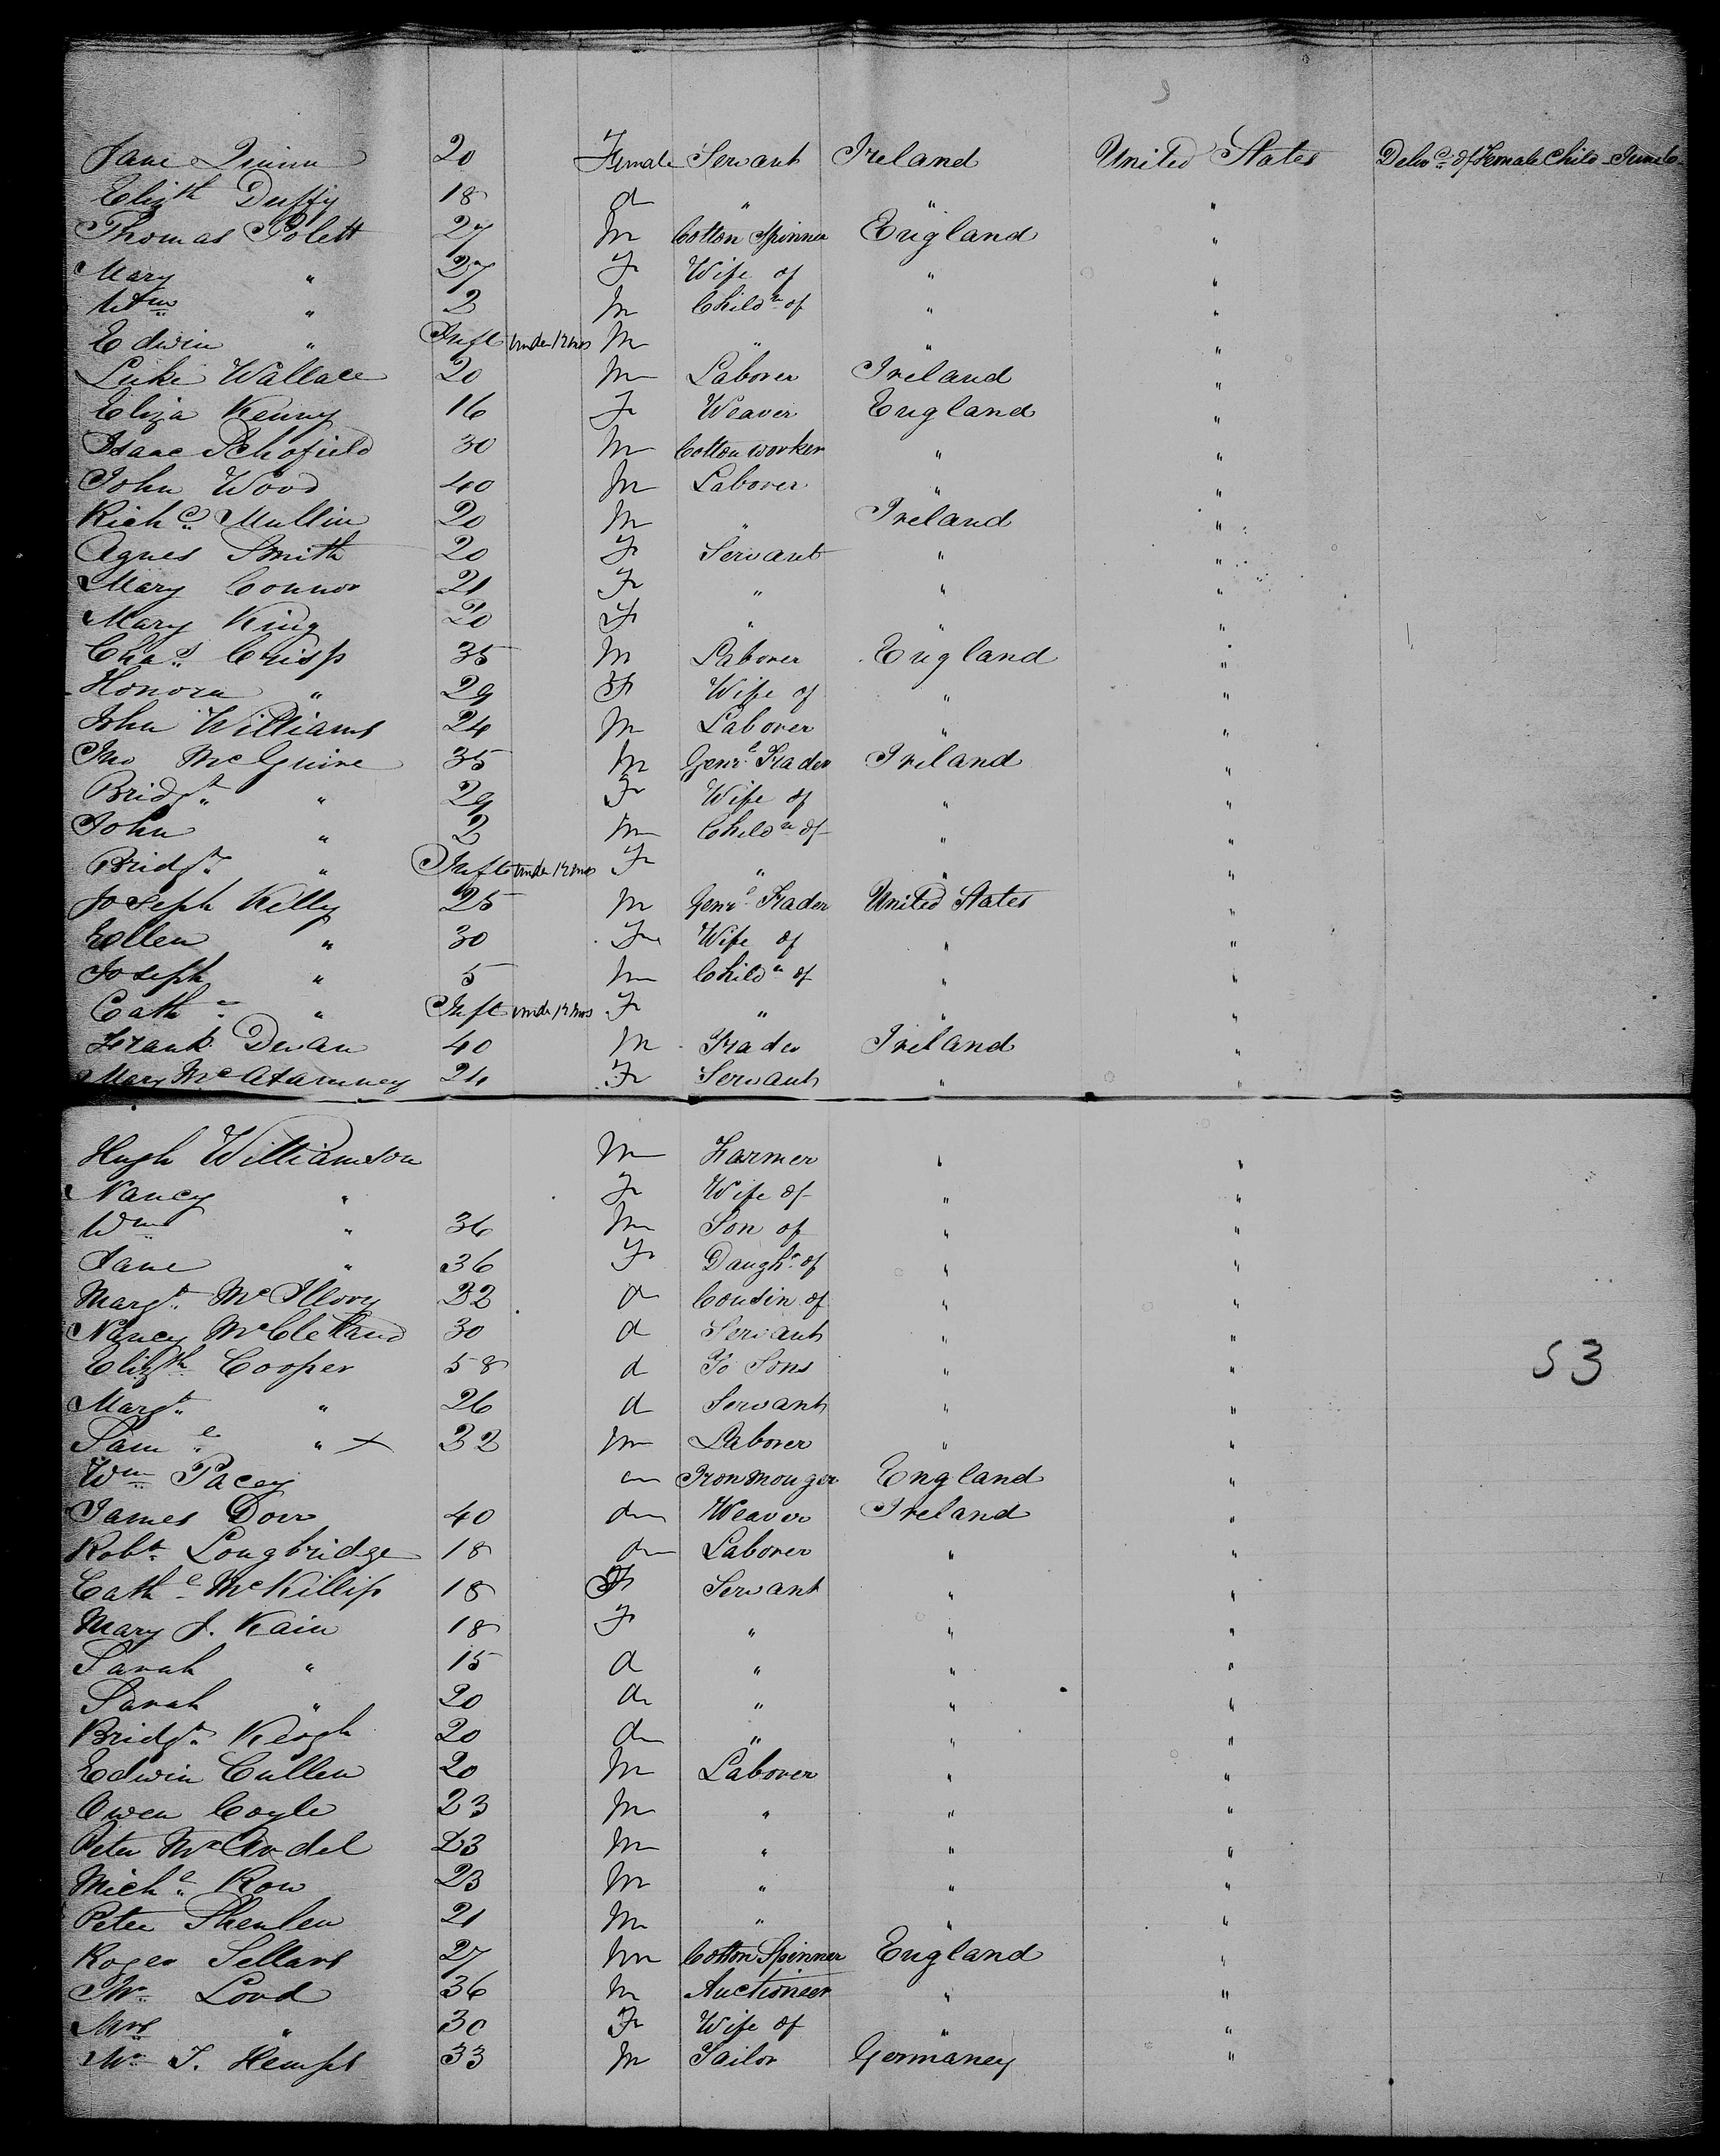 Jane Quinn 20 Female Servant Ireland United States Delivd of Female Child June 10
Elizth Duffy 18 d " " "
Thomas Polett 27 M Cotton Spinner England "
Mary " 27 F Wife of " "
Wm " 2 M Childn of " "
Edwin " Inft under 12 mos M " " "
Luke Wallace 20 M Laborer Ireland "
Eliza Kenny 16 F Weaver England "
Isaac Schofield 30 M Cotton worker " "
John Wood 40 M Laborer " "
Richd Mullin 20 M " Ireland "
Agnes Smith 20 F Servant " "
Mary Connor 21 F " " "
Mary King 20 F " " "
Chas Crisp 35 M Laborer England "
Honora " 29 F Wife of " "
John Williams 24 M Laborer " "
Jno McGuire 35 M Genrl Trader Ireland "
Bridgt " 29 F Wife of " "
John " 2 M Childn of " "
Bridgt " Inft under 12 mos F " " "
Joseph Kelly 25 M Genrl Trader United States "
Ellen " 30 F Wife of " "
Joseph " 5 M Childn of " "
Cathe " Inft under 12 mos F " " "
Frank Devan 40 M Trader Ireland "
Mary McAtamney 24 F Servant " "
Hugh Williamson M Farmer " "
Nancy " F Wife of " "
Wm " 36 M Son of " "
Jane " 36 F Daughr of " "
Margt McIlvoy 32 d Cousin of " "
Nancy McCleland 30 d Servant " "
Elizth Cooper 58 d To Sons " " 53
Margt " 26 d Servant " "
Saml " x 32 M Laborer " "
Wm Pacey m Ironmonger England "
James Dorr 40 do Weaver Ireland "
Robt Longbridge 18 do Laborer " "
Cathe McKillip 18 F Servant " "
Mary J. Kain 18 F " " "
Sarah " 15 d " " "
Sarah " 20 d " " "
Bridgt Keogh 20 do " " "
Edwin Cullen 20 M Laborer " "
Owen Coyle 23 M " " "
Peter McArdel 23 M " " "
Michl Row 23 M " " "
Peter Shenlen 21 M " " "
Roger Sellars 27 M Cotton Spinner England "
Mr Lord 36 M Auctioneer " "
Mrs " 30 F Wife of " "
Mr J. Hempl 33 M Tailor Germaney "